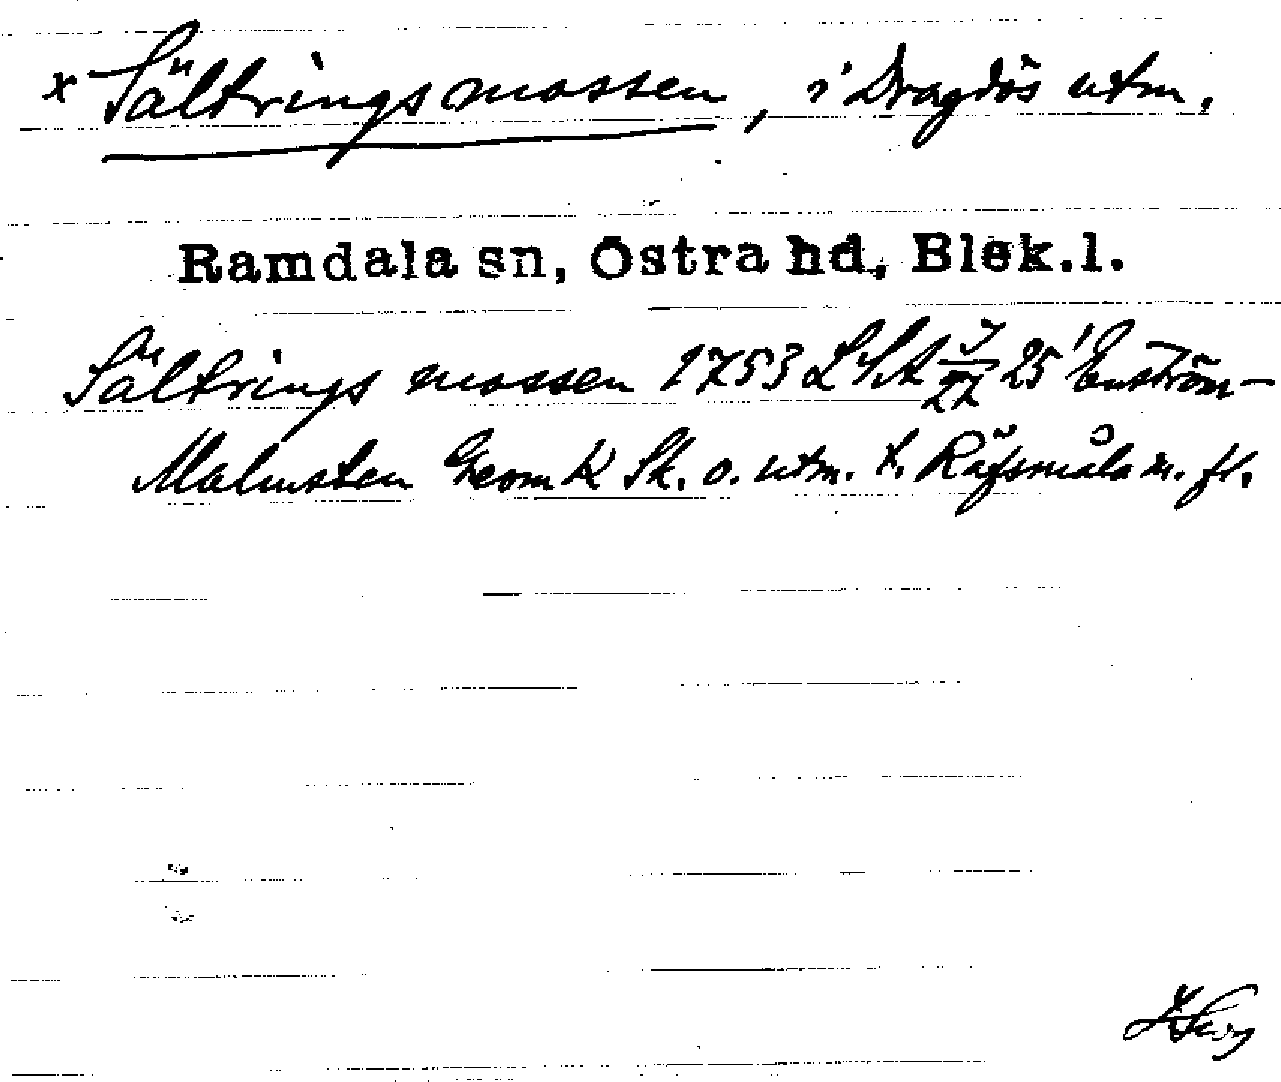 x Sältringsmossen, i Dragsös utm.
Ramdala sn, Östra hd, Blek.l.
Sältrings mossen 1753 LSA 25 Enström-
Malmsten Geom K Sk. o. utm. t. Räfsmåla m. fl.